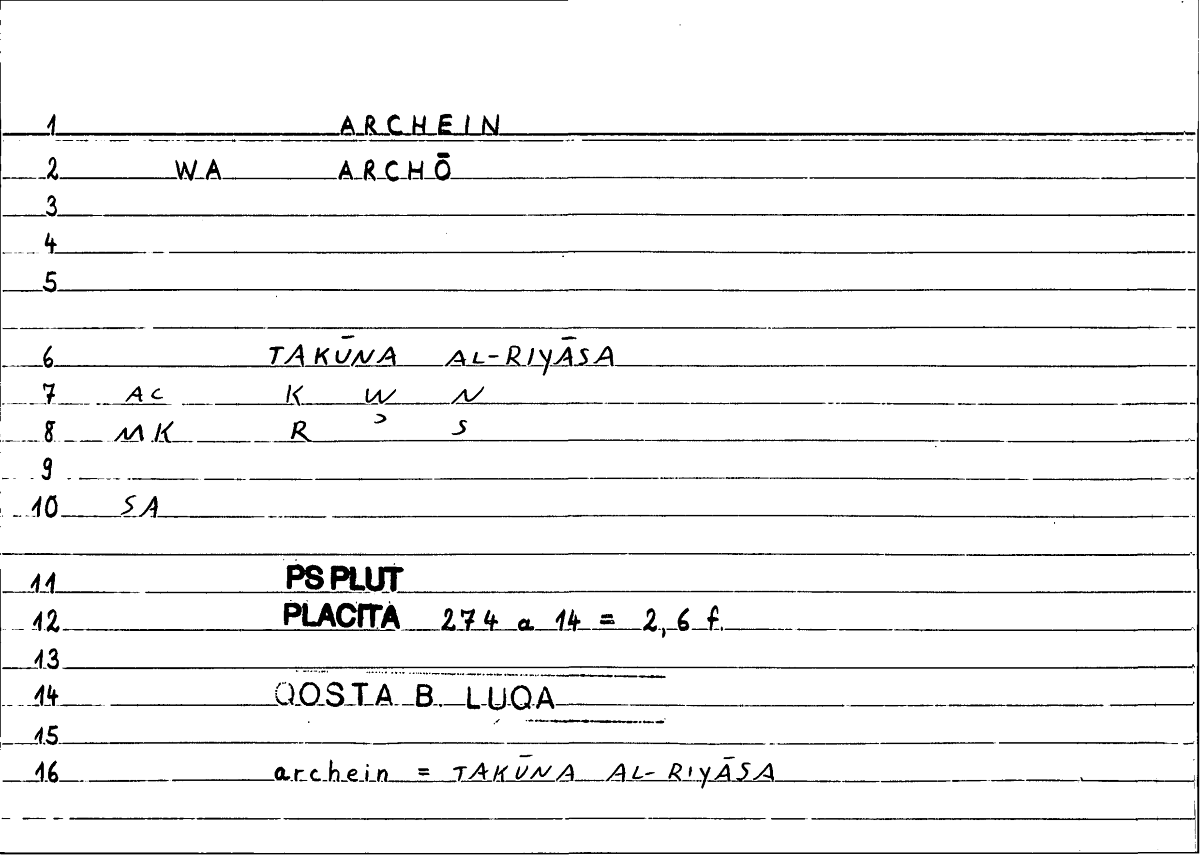 1 ARCHEIN
2 WA ARCHŌ
3
4
5
6 TAKŪNA AL-RIYĀSA
7 AC K W N
8 MK R ʾ S
9
10 SA
11 PS PLUT
12 PLACITA 274 a 14 = 2,6 f.
13
14 QOSTA B. LUQA
15
16 archein = TAKŪNA AL-RIYĀSA